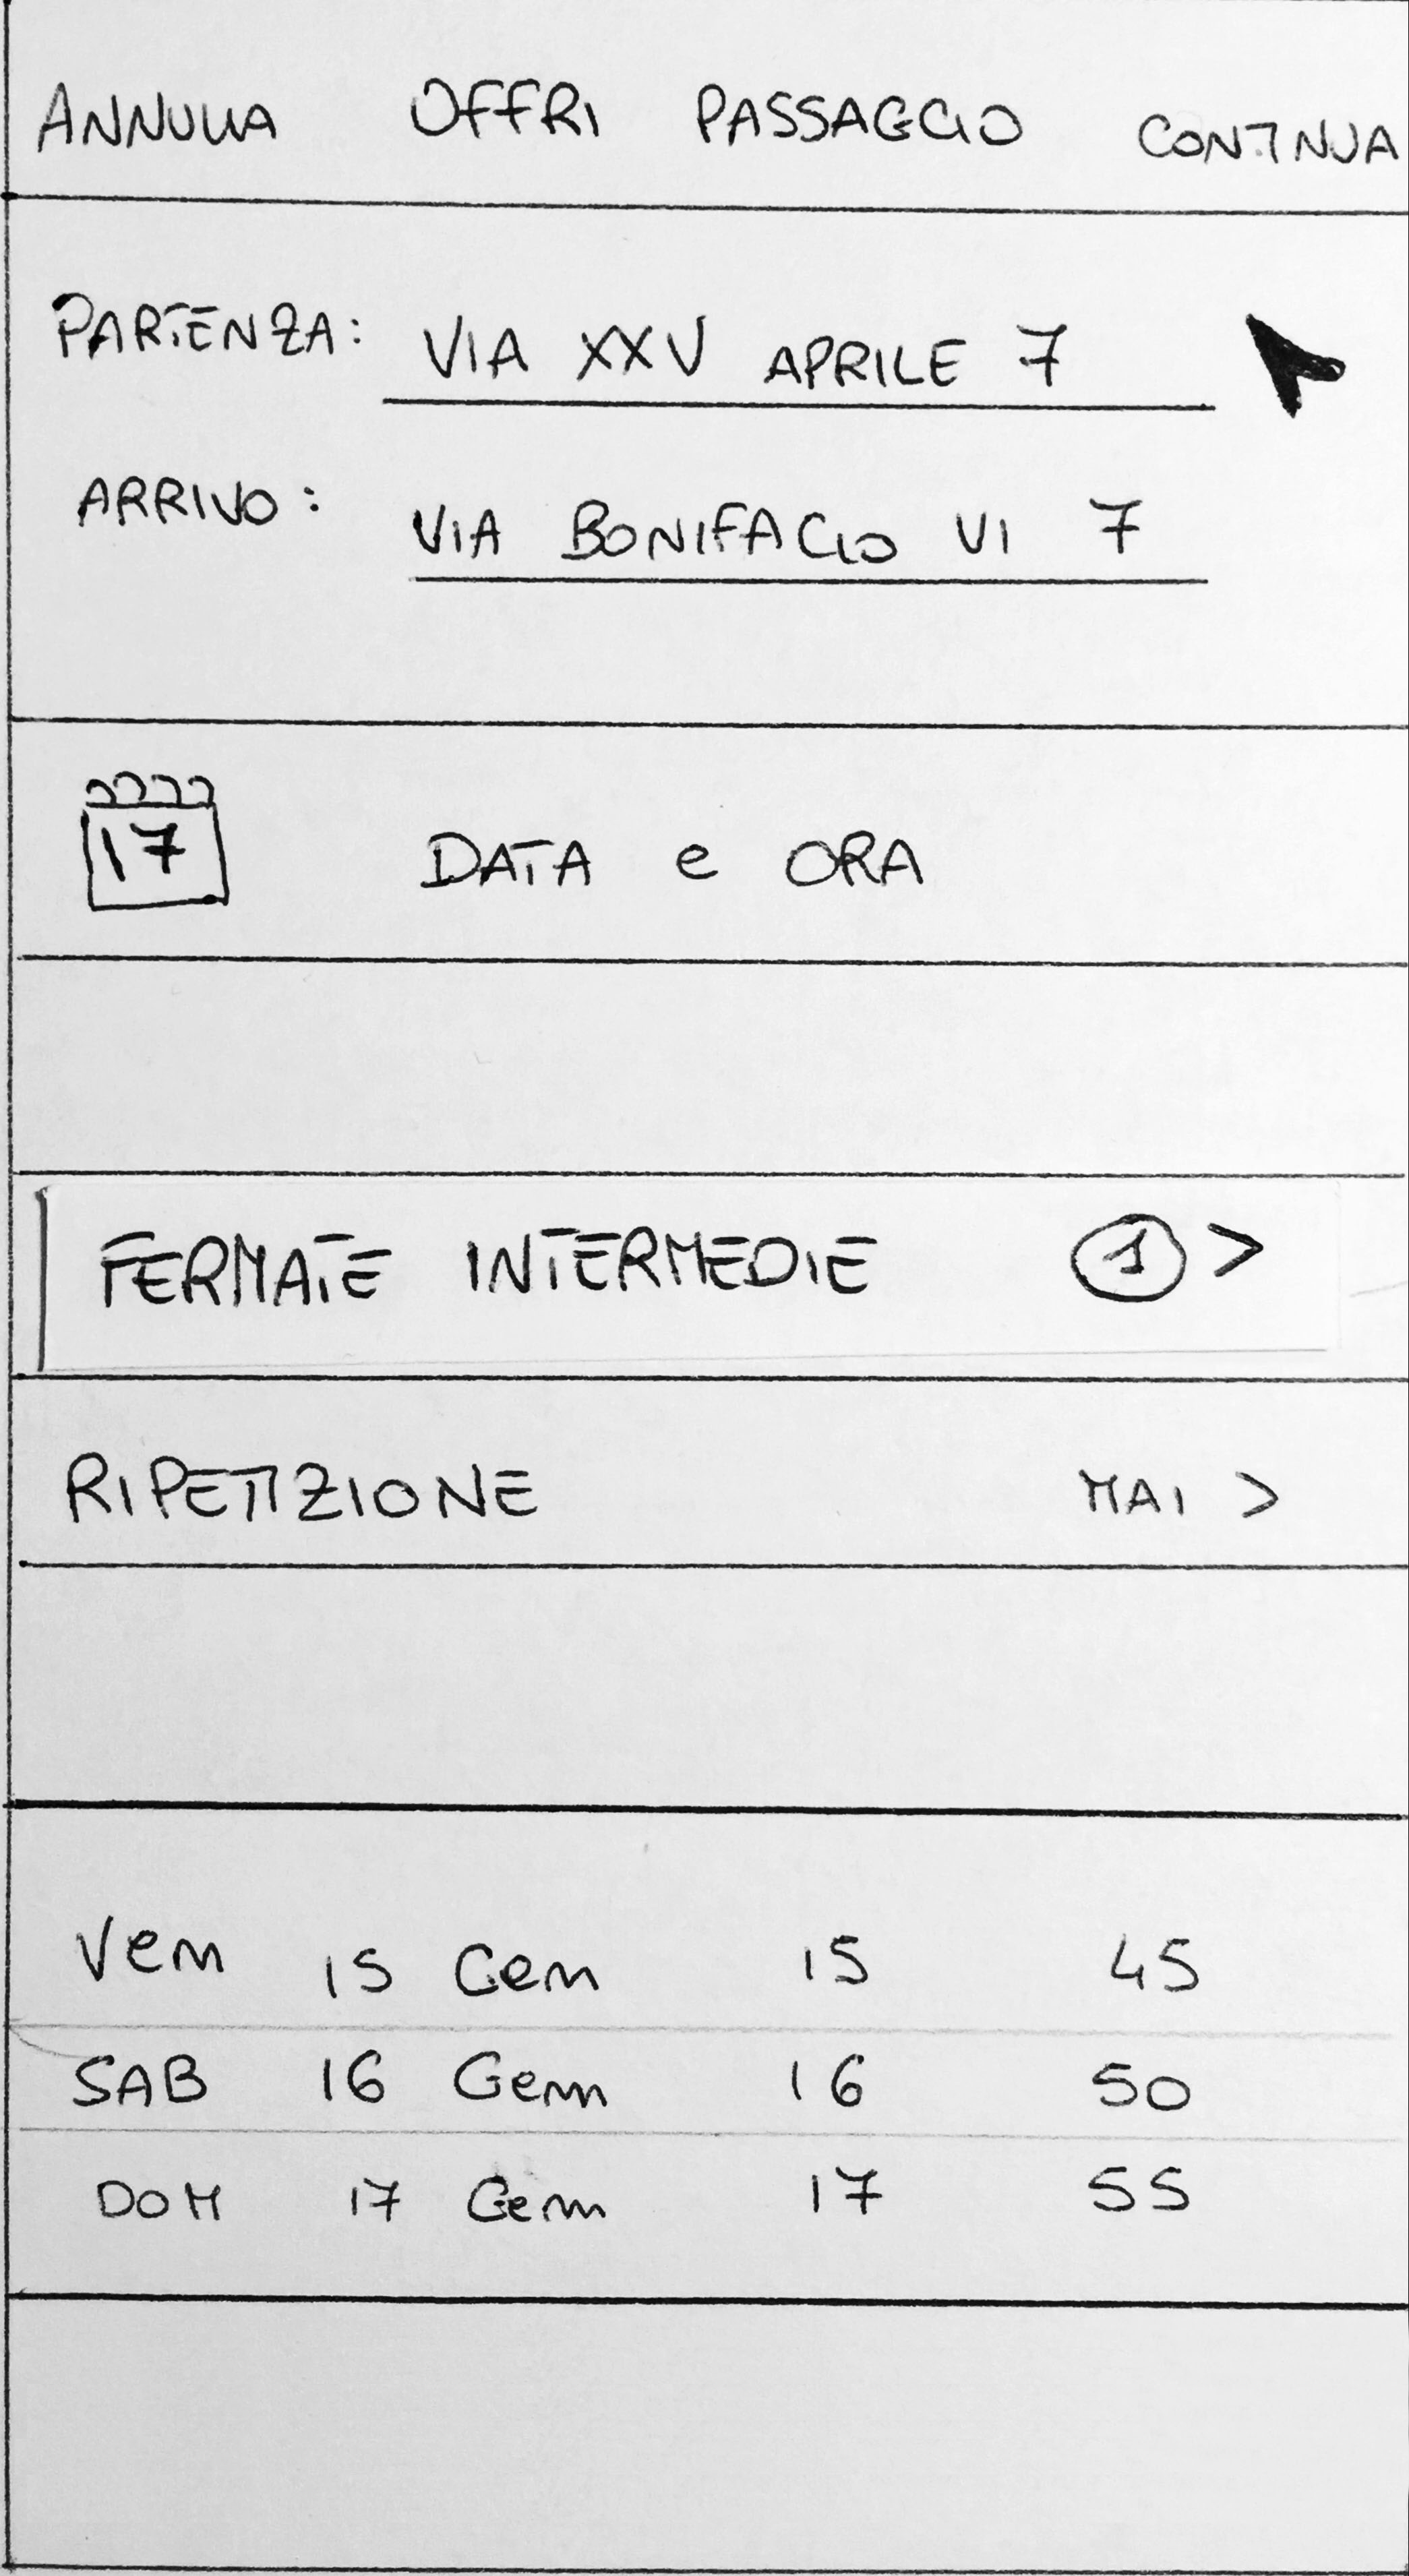 ANNULLA OFFRI PASSAGGIO CONTINUA
PARTENZA: VIA XXV APRILE 7
ARRIVO: VIA BONIFACIO VI 7
17 DATA e ORA
FERMATE INTERMEDIE 1 >
RIPETIZIONE MAI >
Ven 15 Gen 15 45
SAB 16 Genn 16 50
DOM 17 Genn 17 55